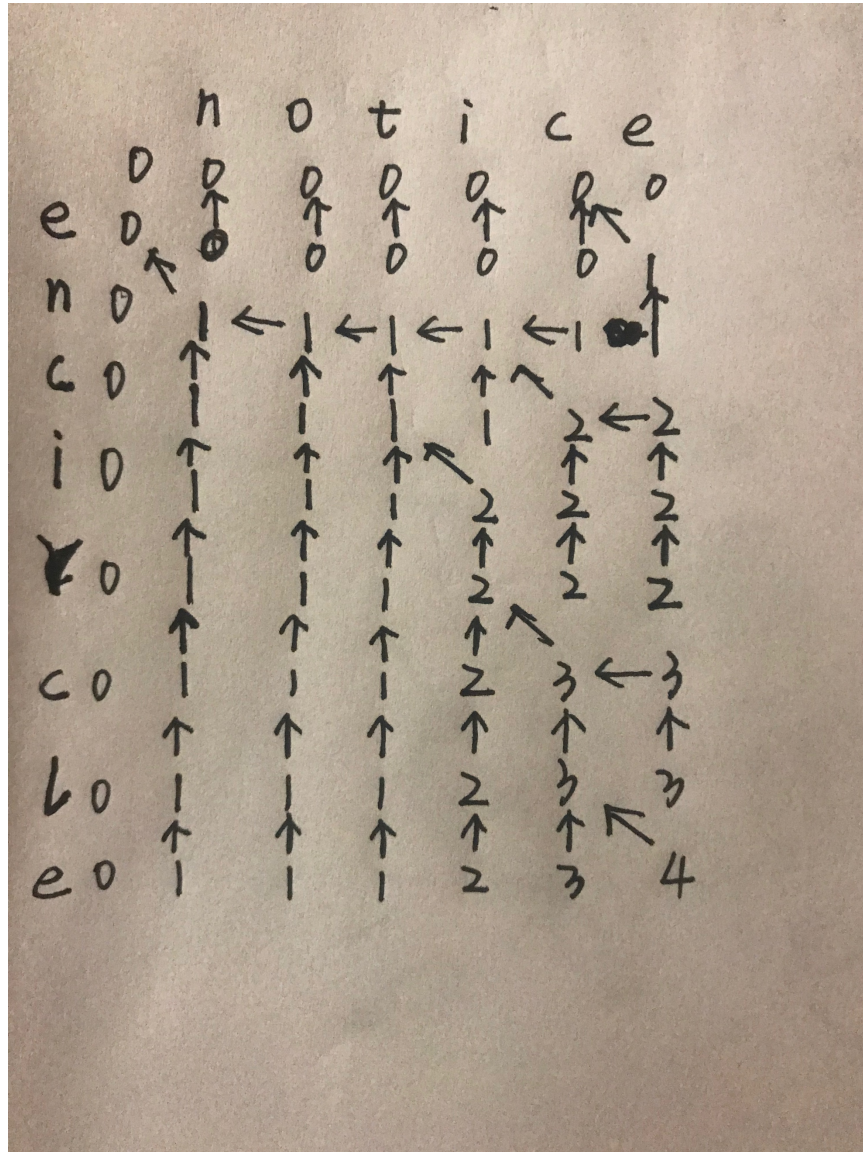 n o t i c e
0 0 0 0 0 0 0
e 0 0 0 0 0 0 1
n 0 1 ← 1 ← 1 ← 1 ← 1 1
c 0 1 1 1 1 2 ← 2
i 0 1 1 1 2 2 2
r 0 1 1 1 2 2 2
c 0 1 1 1 2 3 ← 3
l 0 1 1 1 2 3 3
e 0 1 1 1 2 3 4